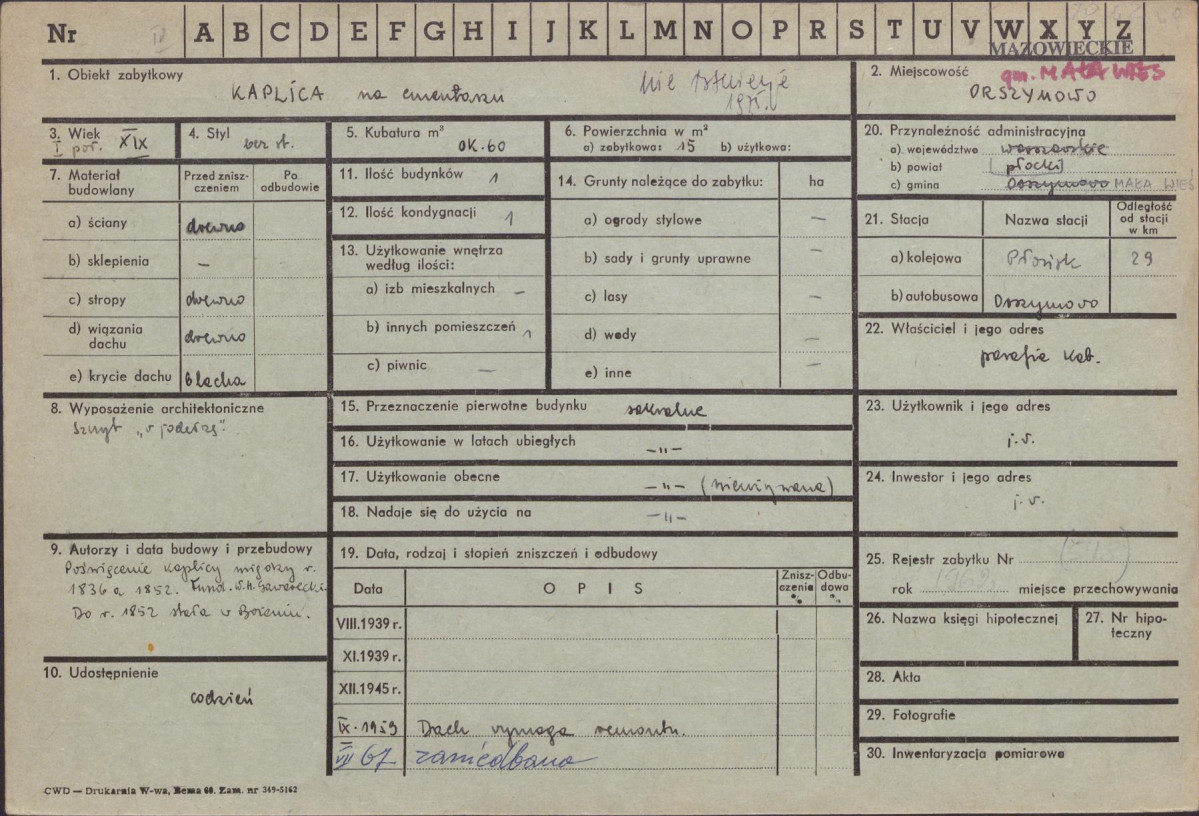 Nr IV A B C D E F G H I J K L M N O P R S T U V W X Y Z
MAZOWIECKIE
1. Obiekt zabytkowy
KAPLICA na cmentarzu
nie istnieje
1975 r.
2. Miejscowość
gm. MAŁA WIEŚ
ORSZYMOWO
3. Wiek
I poł. XIX
4. Styl
bez st.
5. Kubatura m³
ok. 60
6. Powierzchnia w m²
a) zabytkowa: 15 b) użytkowa:
20. Przynależność administracyjna
a). województwo warszawskie
b) powiat (płocki)
c) gmina Orszymowo MAŁA WIEŚ
7. Materiał budowlany
Przed zniszczeniem
Po odbudowie
a) ściany drewno
b) sklepienia —
c) stropy drewno
d) wiązania dachu drewno
e) krycie dachu blacha
11. Ilość budynków 1
12. Ilość kondygnacji 1
13. Użytkowanie wnętrza
według ilości:
a) izb mieszkalnych —
b) innych pomieszczeń 1
c) piwnic —
14. Grunty należące do zabytku: ha
a) ogrody stylowe —
b) sady i grunty uprawne —
c) lasy —
d) wody —
e) inne —
21. Stacja Nazwa stacji Odległość od stacji w km
a) kolejowa Płońsk 29
b) autobusowa Orszymowo
22. Właściciel i jego adres
parafia kat.
8. Wyposażenie architektoniczne
Szczyt „w jodełkę".
15. Przeznaczenie pierwotne budynku sakralne
16. Użytkowanie w latach ubiegłych —„—
17. Użytkowanie obecne —„— (nieużywana)
18. Nadaje się do użycia na —„—
23. Użytkownik i jego adres
j.w.
24. Inwestor i jego adres
j.w.
9. Autorzy i data budowy i przebudowy
Poświęcenie kaplicy między r.
1836 a 1852. Fund. W.H. Gawarecki.
Do r. 1852 stała w Bożeniu.
10. Udostępnienie
codzień
19. Data, rodzaj i stopień zniszczeń i odbudowy
Data OPIS Zniszczenie % Odbudowa %
VIII.1939 r.
XI.1939 r.
XII.1945 r.
IX.1959 Dach wymaga remontu.
VII 67 zaniedbana
25. Rejestr zabytku Nr
rok 1962 miejsce przechowywania
26. Nazwa księgi hipotecznej
27. Nr hipoteczny
28. Akta
29. Fotografie
30. Inwentaryzacja pomiarowa
CWD — Drukarnia W-wa, Bema 60. Zam. nr 349-5162